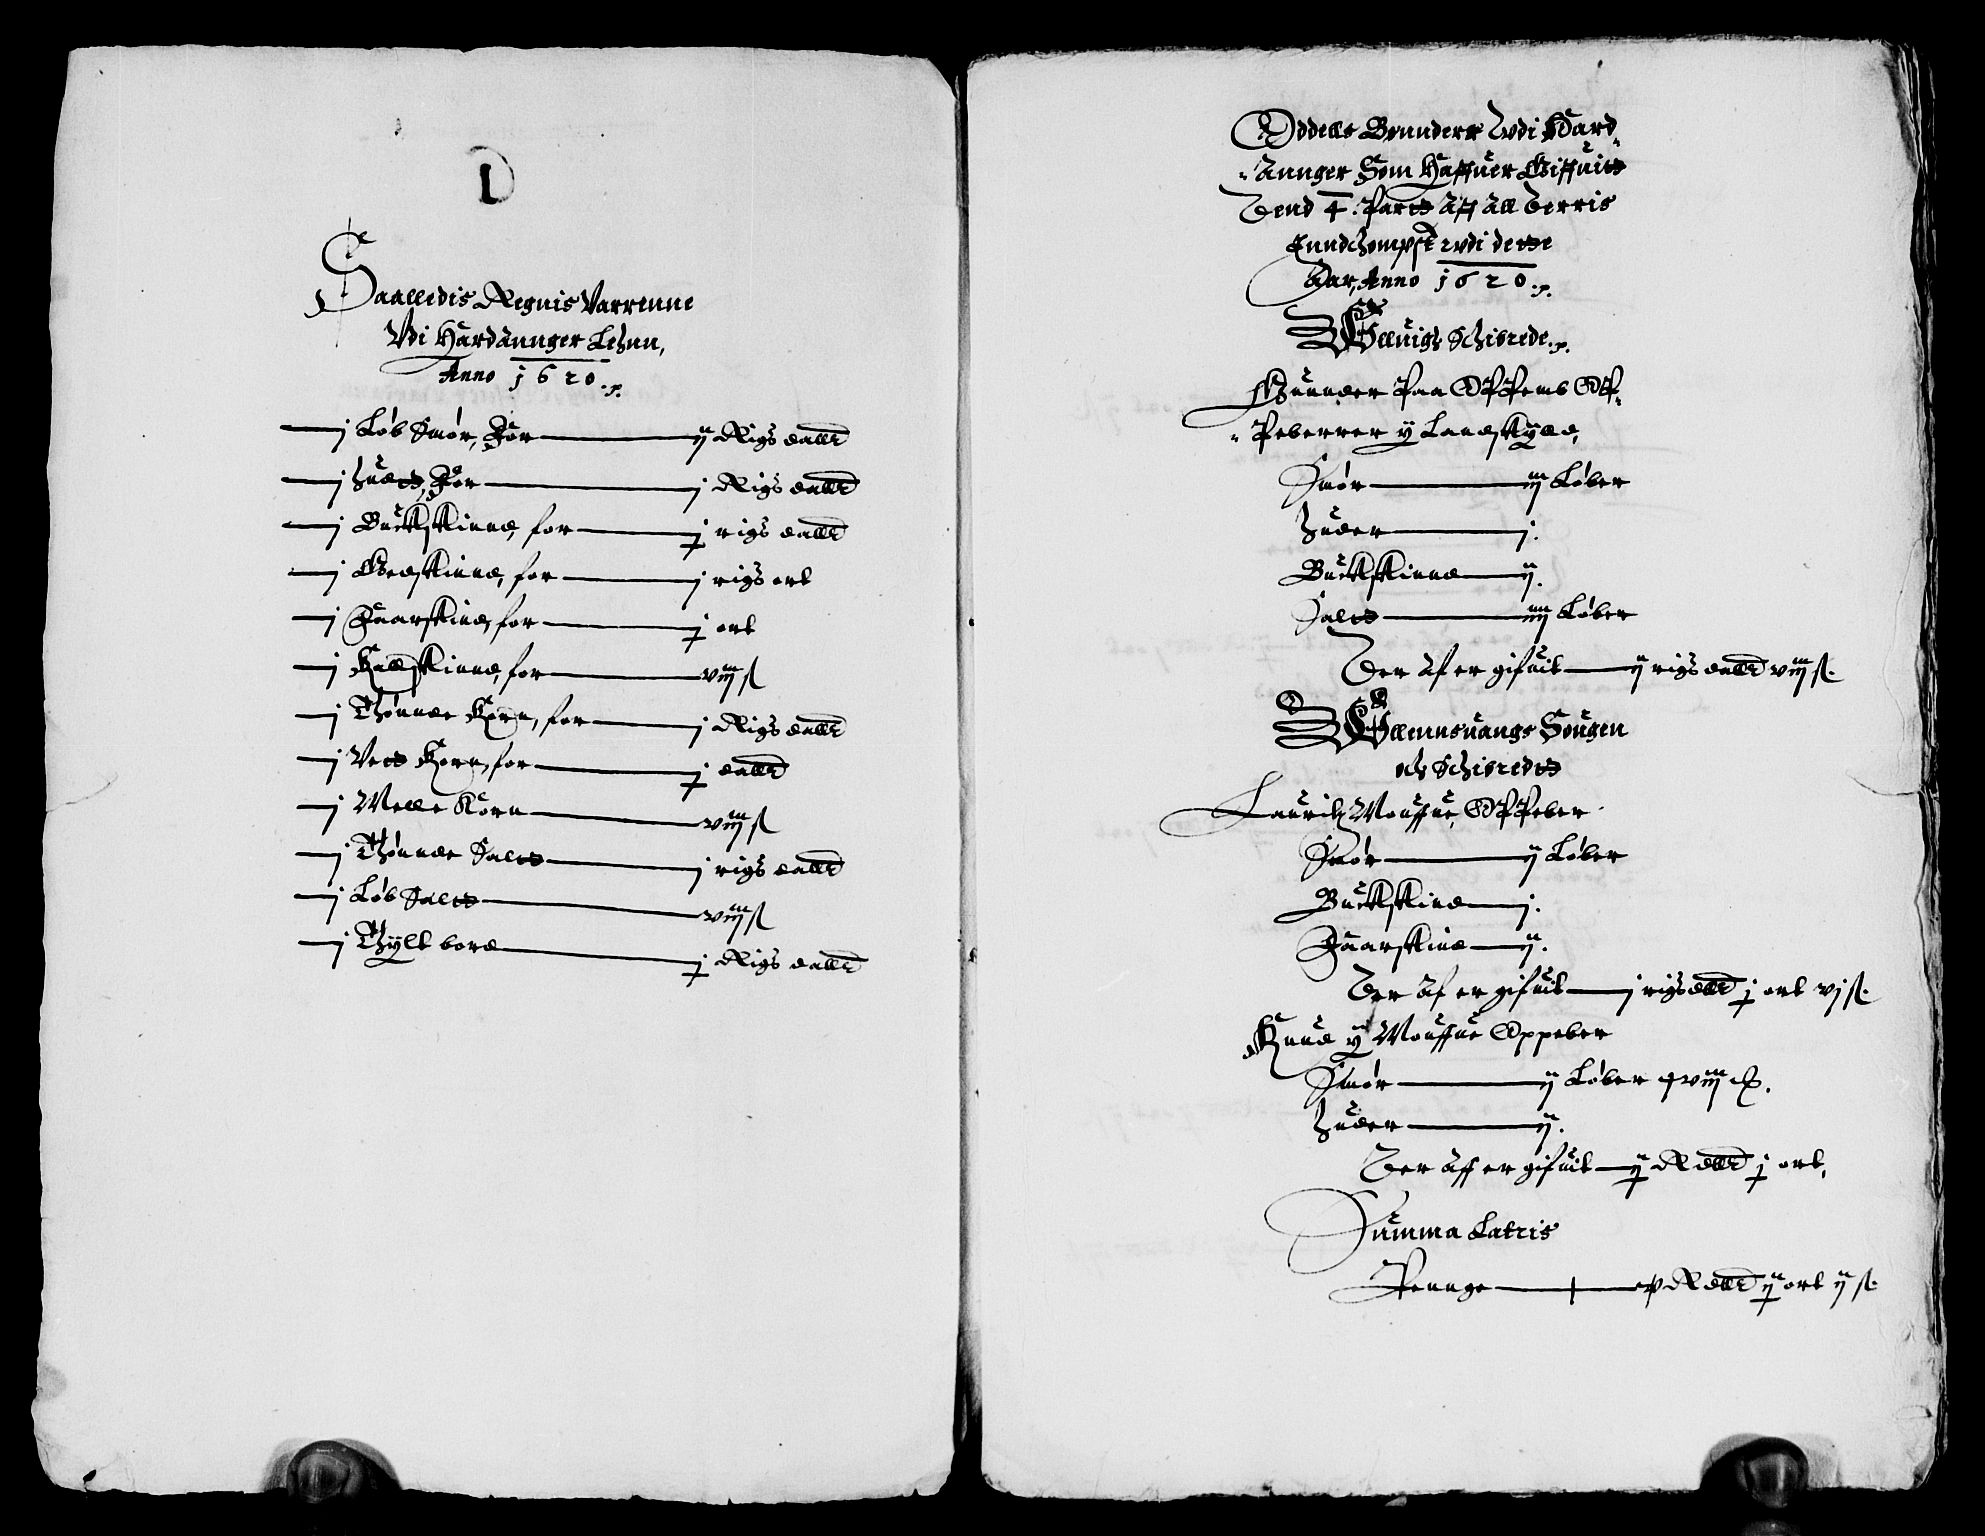 1
Saalledis Regnis Varrenne
Vdi Hardannger Lehnn,
Anno 1620.
j Løb Smør, For ij Rigs dallr
j hudt, For j Rigs dallr
j Buckskinnd, for j rigs dallr
j Giedskinnd, for j rigs ort
j Faarskind, for j ort
j Kalfskinnd, for viij ß
j Thønnde Korn, for j Rigs dallr
j Vett Korn, for j dallr
j Melle Korn viij ß
j Thønnde Saltt j rigs dallr
j Løb Saltt viij ß
j Thylt bord j Rigs dallr
Oddells Bønnderr Wdi Hard-
-annger Som Haffuer Giffuitt
Dend 4. Partt Aff All Derris
Lanndzompst wdi dette
Aar, Anno 1620.
Elluigs Schibrede.
Gunnder Paa Oppems Op-
-Peberrer y Landskyld,
Smør iij Løber
huder j.
Buckskinnd ij.
Saltt iiij Løber
Der Af er gifuit ij rigs dallr viij ß.
Ullennsuangs Sougen
och Schibredtt
Laurits Mouffue, OpPeber
Smør ij Løber
Buckskind j.
Faarskind ij.
Der Af er gifuit j rigs dallr j ort vj ß.
Knud y Mouffue Oppeber
Smør ij Løber
huder ij.
Der Aff er gifuit ij R dallr j ort,
Summa Latris
Pennge R dallr ij ort ij ß.